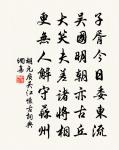 子胥今日委東流
吳國明朝亦古丘
大笑夫差諸將相
更無人解守蘇州
胡元質吳江懷古詞典
網書